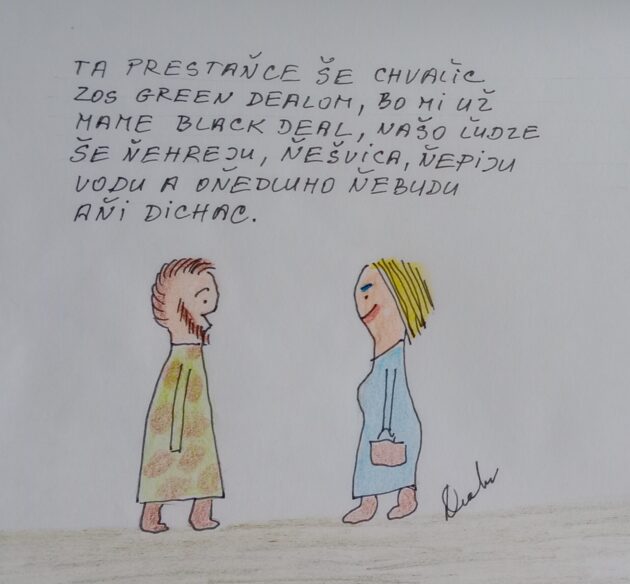 TA PRESTAŇCE ŠE CHVAĽIC
ZOS GREEN DEALOM, BO MI UŽ
MAME BLACK DEAL, NAŠO ĽUDZE
ŠE ŇEHREJU, ŇEŠVICA, ŇEPIJU
VODU A OŇEDLUHO ŇEBUDU
AŇI DICHAC.